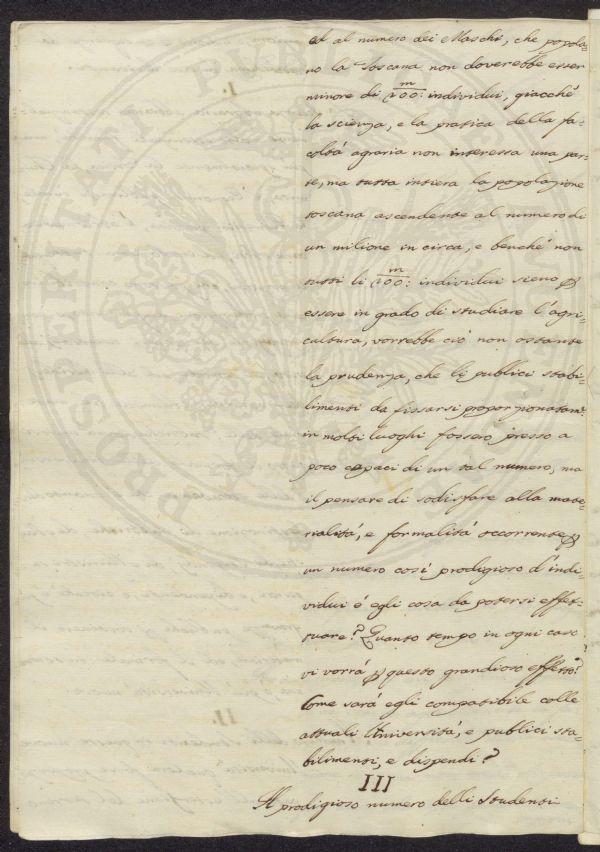 et al numero dei Maschi, che popola-
no la Toscana non doverebbe esser
minore di 100:m individui, giacchè
la scienza, e la pratica della fa-
coltà agraria non interessa una par-
te, ma tutta intiera la popolazione
toscana ascendente al numero di
un milione in circa, e benchè non
tutti li 100:m individui sieno p
essere in grado di studiare l'agri-
cultura, vorrebbe ciò non ostante
la prudenza, che li publici stabi-
limenti da fissarsi proporzionatam:
in molti luoghi fossero presso a
poco capaci di un tal numero, ma
il pensare di sodisfare alla mate-
rialità, e formalità occorrente p
un numero così prodigioso d'indi-
vidui è egli cosa da potersi effet-
tuare? Quanto tempo in ogni caso
vi vorrà p questo grandioso effetto?
Come sarà egli compatibile colle
attuali Università, e publici sta-
bilimenti, e dispendi?
III
Al prodigioso numero delli Studenti
PROSPERITATI PUB